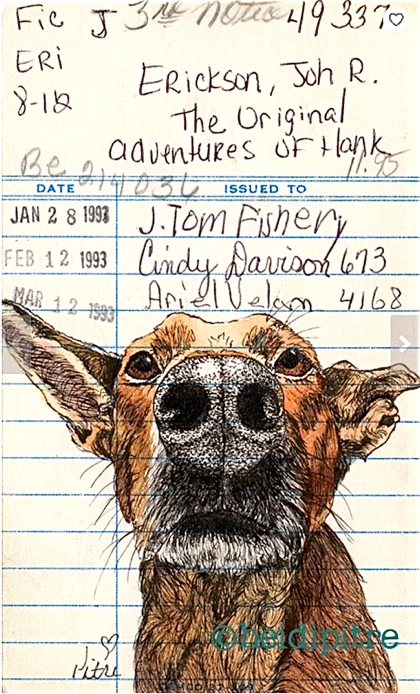 Fic J 3rd notice 49337
ERi
8-12
Erickson, Joh R.
The Original
adventures of Hank
11.95
Be 214036
DATE ISSUED TO
JAN 28 1993 J. Tom Fishery
FEB 12 1993 Cindy Davison 673
MAR 12 1993 Ariel 4168
@heidipitre
Pitre